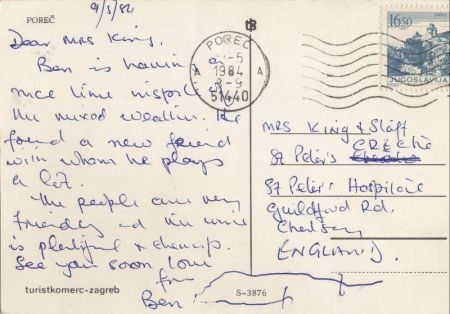 9/5/84
POREČ
Dear Mrs King,
Ben is having a
nice time inspite of
the mixed weather. He
found a new friend
with whom he plays
a lot.
The people are very
friendly and the wine
is plentiful & cheap.
See you soon love
from
Ben
turistkomerc-zagreb
S-3876
POREČ
1984
51440
A A
16.50
JUGOSLAVIJA
Mrs King & Staff
CRECHE
St Peter's
St Peter's Hospital
Guildford Rd.
Chertsey
ENGLAND.